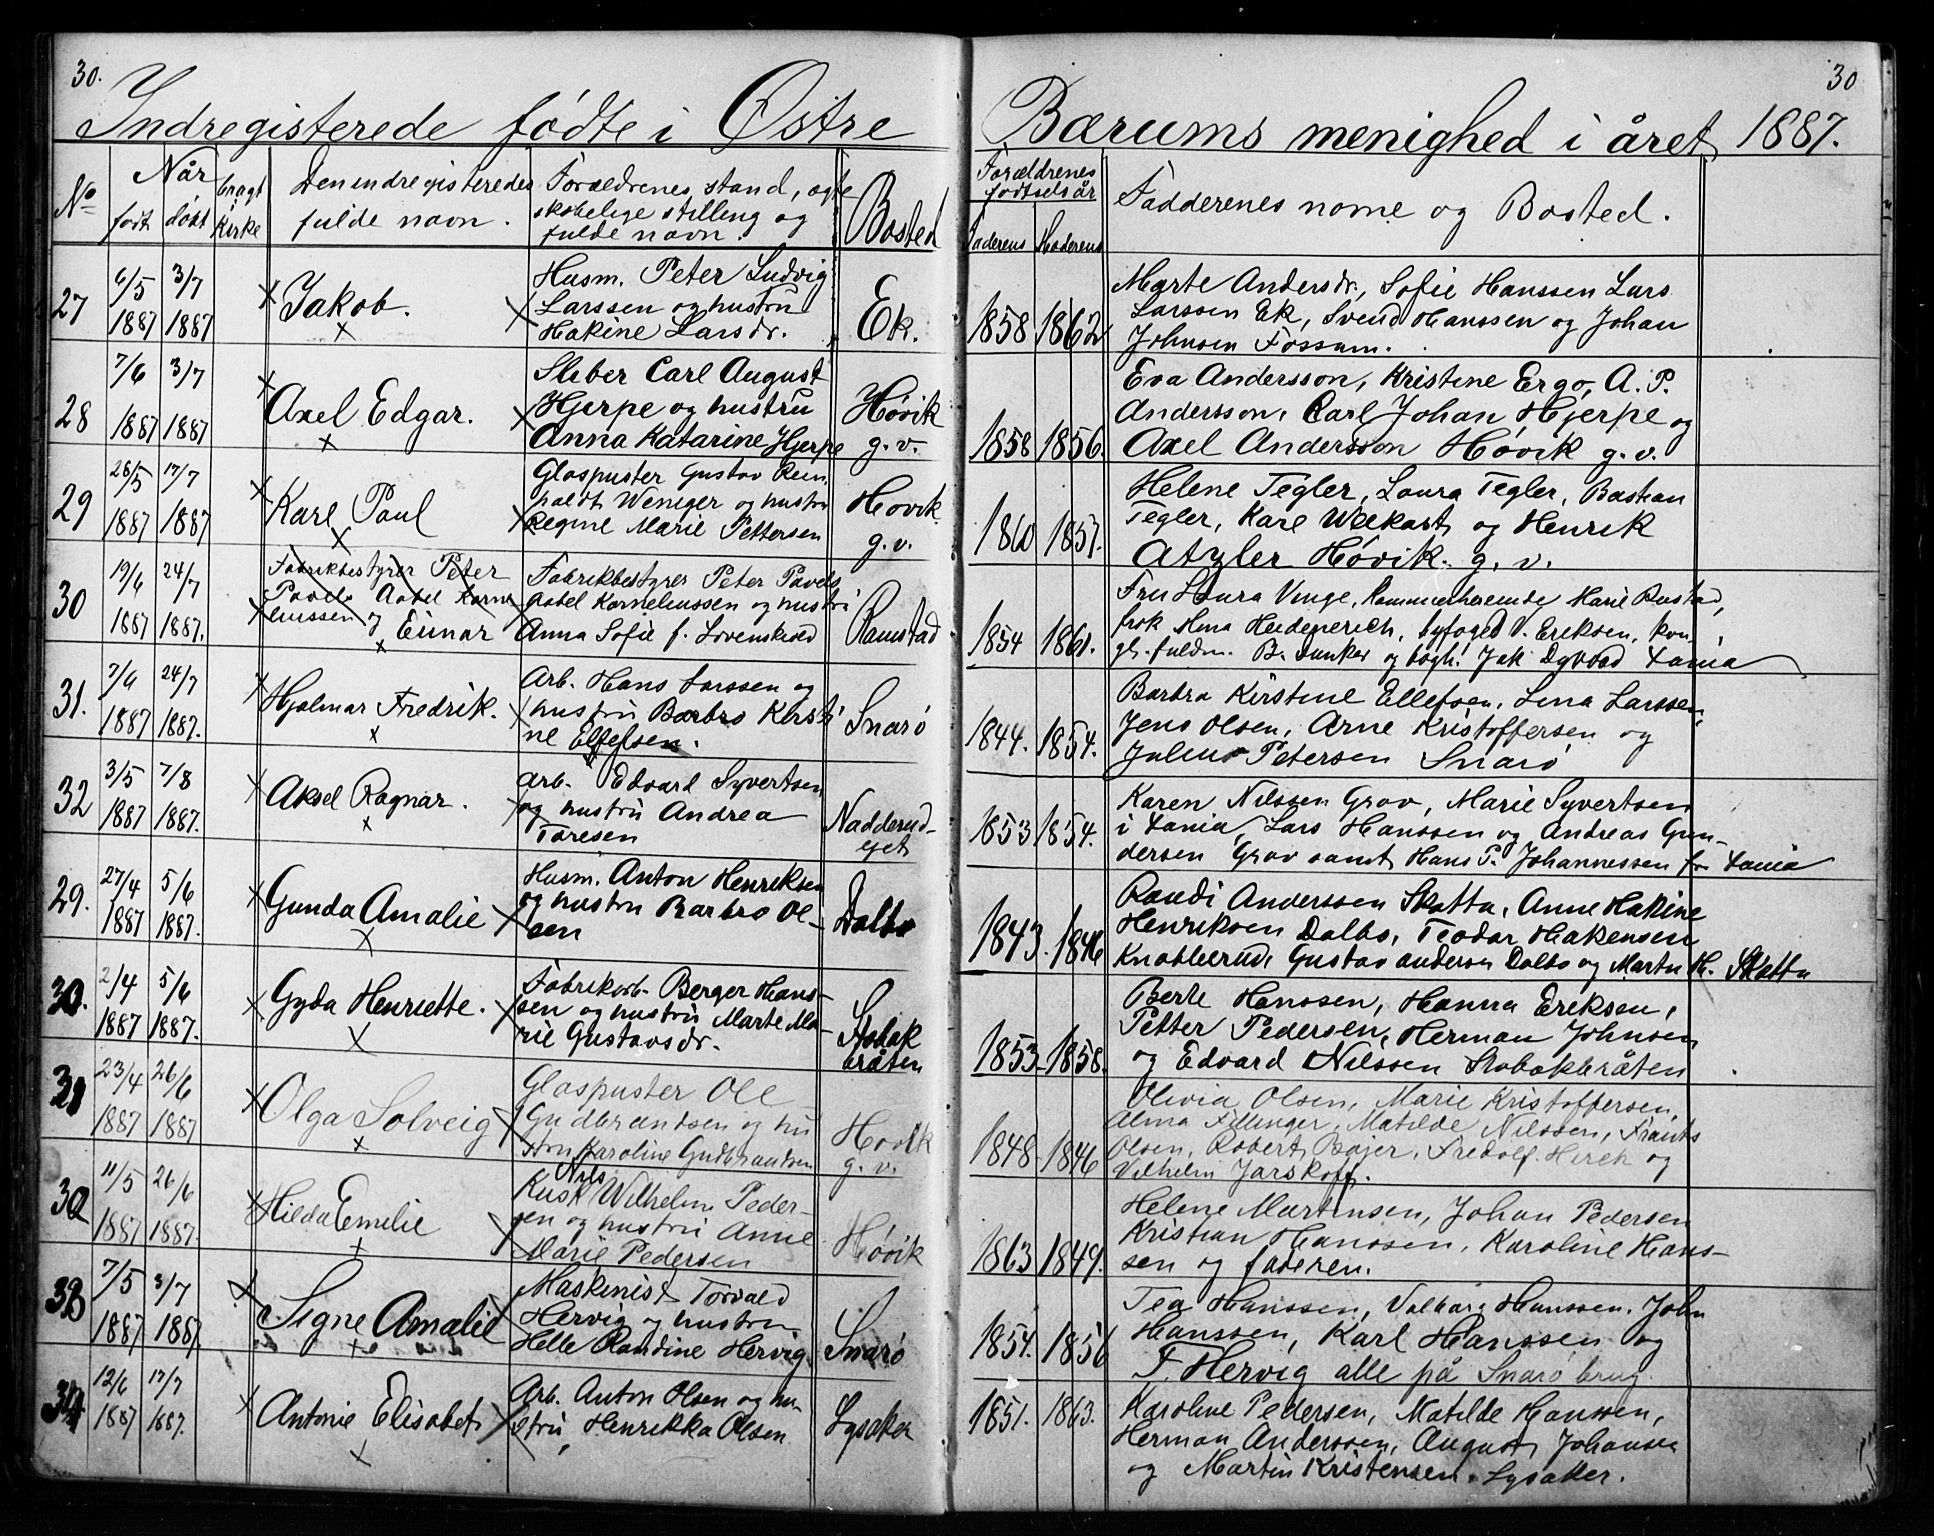 30.
30
Indregisterede fødte i Østre
Bærums menighed i året 1887.
No
Når
født
døbt
bragt i Kirke
Den indregisteredes
fulde navn.
Forældrenes stand, ægte
skabelige stilling og
fulde navn.
Bosted
Forældrenes
fødselsår
Faderens
Moderens
Fadderenes navne og Bosted.
27
6/5
1887
3/7
1887
Jakob.
Husm. Peter Ludvig
Larssen og hustru
Hakine Larsdr.
Ek.
1858
1862
Marte Andersdr., Sofie Hanssen Lars
Larssen Ek, Svend Hanssen og Johan
Johnsen Fossum.
28
7/6
1887
3/7
1887
Axel Edgar.
Sliber Carl August
Hjerpe og hustru
Anna Katarine Hjerpe
Høvik
g. v.
1858
1856.
Eva Andersson, Kristine Ergo, A. P.
Andersson, Carl Johan Hjerpe og
Axel Andersson Høvik g. v.
29
28/5
1887
17/7
1887
Karl Paul
Glaspuster Gustav Rein
haldt Weniger og hustru
Regine Marie Pettersen
Høvik
g. v.
1860
1857.
Helene Tegler, Laura Tegler, Bastian
Tegler, Karl Weekast og Henrik
Atzler Høvik. g. v.
30
19/6
1887
24/7
1887.
Fabrikbestyrer Peter
Pavels Aabel Korne
liussen og
Einar
Fabrikbestyrer Peter Pavels
Aabel Korneliussen og hustru
Anna Sofie f. Lovenskiold
Ramstad
1854
1861.
Fru Laura Vinge, Kammerherreinde Marie Bastad,
frøk Mena Heidenreich, byfoged V. Eriksen, kon
gl. fuldm. B. Dunker og bogh. Jak Dybvad Xania
31.
7/6
1887
24/7
1887.
Hjalmar Fredrik.
Arb. Hans Larssen og
hustru Barbro Kirsti
ne Ellefsen.
Snarø
1844.
1854.
Barbra Kirstine Ellefsen, Lina Larssen,
Jens Olsen, Arne Kristoffersen og
Julius Petersen Snarø
32
3/5
1887
7/8
1887.
Aksel Ragnar.
Arb. Edvard Syvertsen
og hustru Andrea
Toresen
Nadderud-
ejet
1853
1854.
Karen Nilssen Grav, Marie Syvertsen
i Xania, Lars Hanssen og Andreas Gun-
dersen Grav samt Hans P. Johannessen fr Xania
29.
27/4
1887
5/6
1887.
Gunda Amalie
Husm. Anton Henriksen
og hustru Barbro Ol-
sen
Dalbo
1843.
1846
Randi Anderssen Skatta, Anne Hakine
Henriksen Dalbo, Teodor Hakensen
Knabberud, Gustav Andersen Dalbo og Martin H. Skatta
30.
2/4
1887
5/6
1887.
Gyda Henriette.
Fabrikarb. Berger Hans-
sen og hustru Marte Ma-
rie Gustavsdr.
Stabak
bråten
1853
1858.
Berte Hanssen, Hanna Eriksen,
Petter Pedersen, Herman Johnsen
og Edvard Nilssen Stabakbråten
31
23/4
1887
26/6
1887
Olga Solveig
Glaspuster Ole
Gudbrandsen og hu
stru Karoline Gudbrandsen
Høvik
g. v.
1848
1846
Olivia Olsen, Marie Kristoffersen,
Alma Fillinger, Matilde Nilssen, Frants
Olsen, Robert Bajer, Fredolf Hirch og
Vilhelm Jarskoff.
32
11/5
1887
26/6
1887.
Hilda Emilie
Nils
Kusk Wilhelm Peder-
sen og hustru Anne
Marie Pedersen
Høvik
1863
1849.
Helene Martinsen, Johan Pedersen
Kristian Hanssen, Karoline Hans-
sen og faderen.
33
7/5
1887
3/7
1887.
Signe Amalie
Maskinist Torvald
Hervig og hustru
Helle Randine Hervig
Snarø
1854.
1856
Tea Hanssen, Valborg Hanssen, John
Hanssen, Karl Hanssen og
T. Hervig alle på Snarø brug.
34
12/6
1887
17/7
1887.
Antonie Elisabet
Arb. Anton Olsen og hu-
stru, Henrikka Olsen
Lysaker
1851.
1863.
Karoline Pedersen, Matilde Hanssen,
Herman Anderssen, August Johansen
og Martin Kristensen. Lysaker.